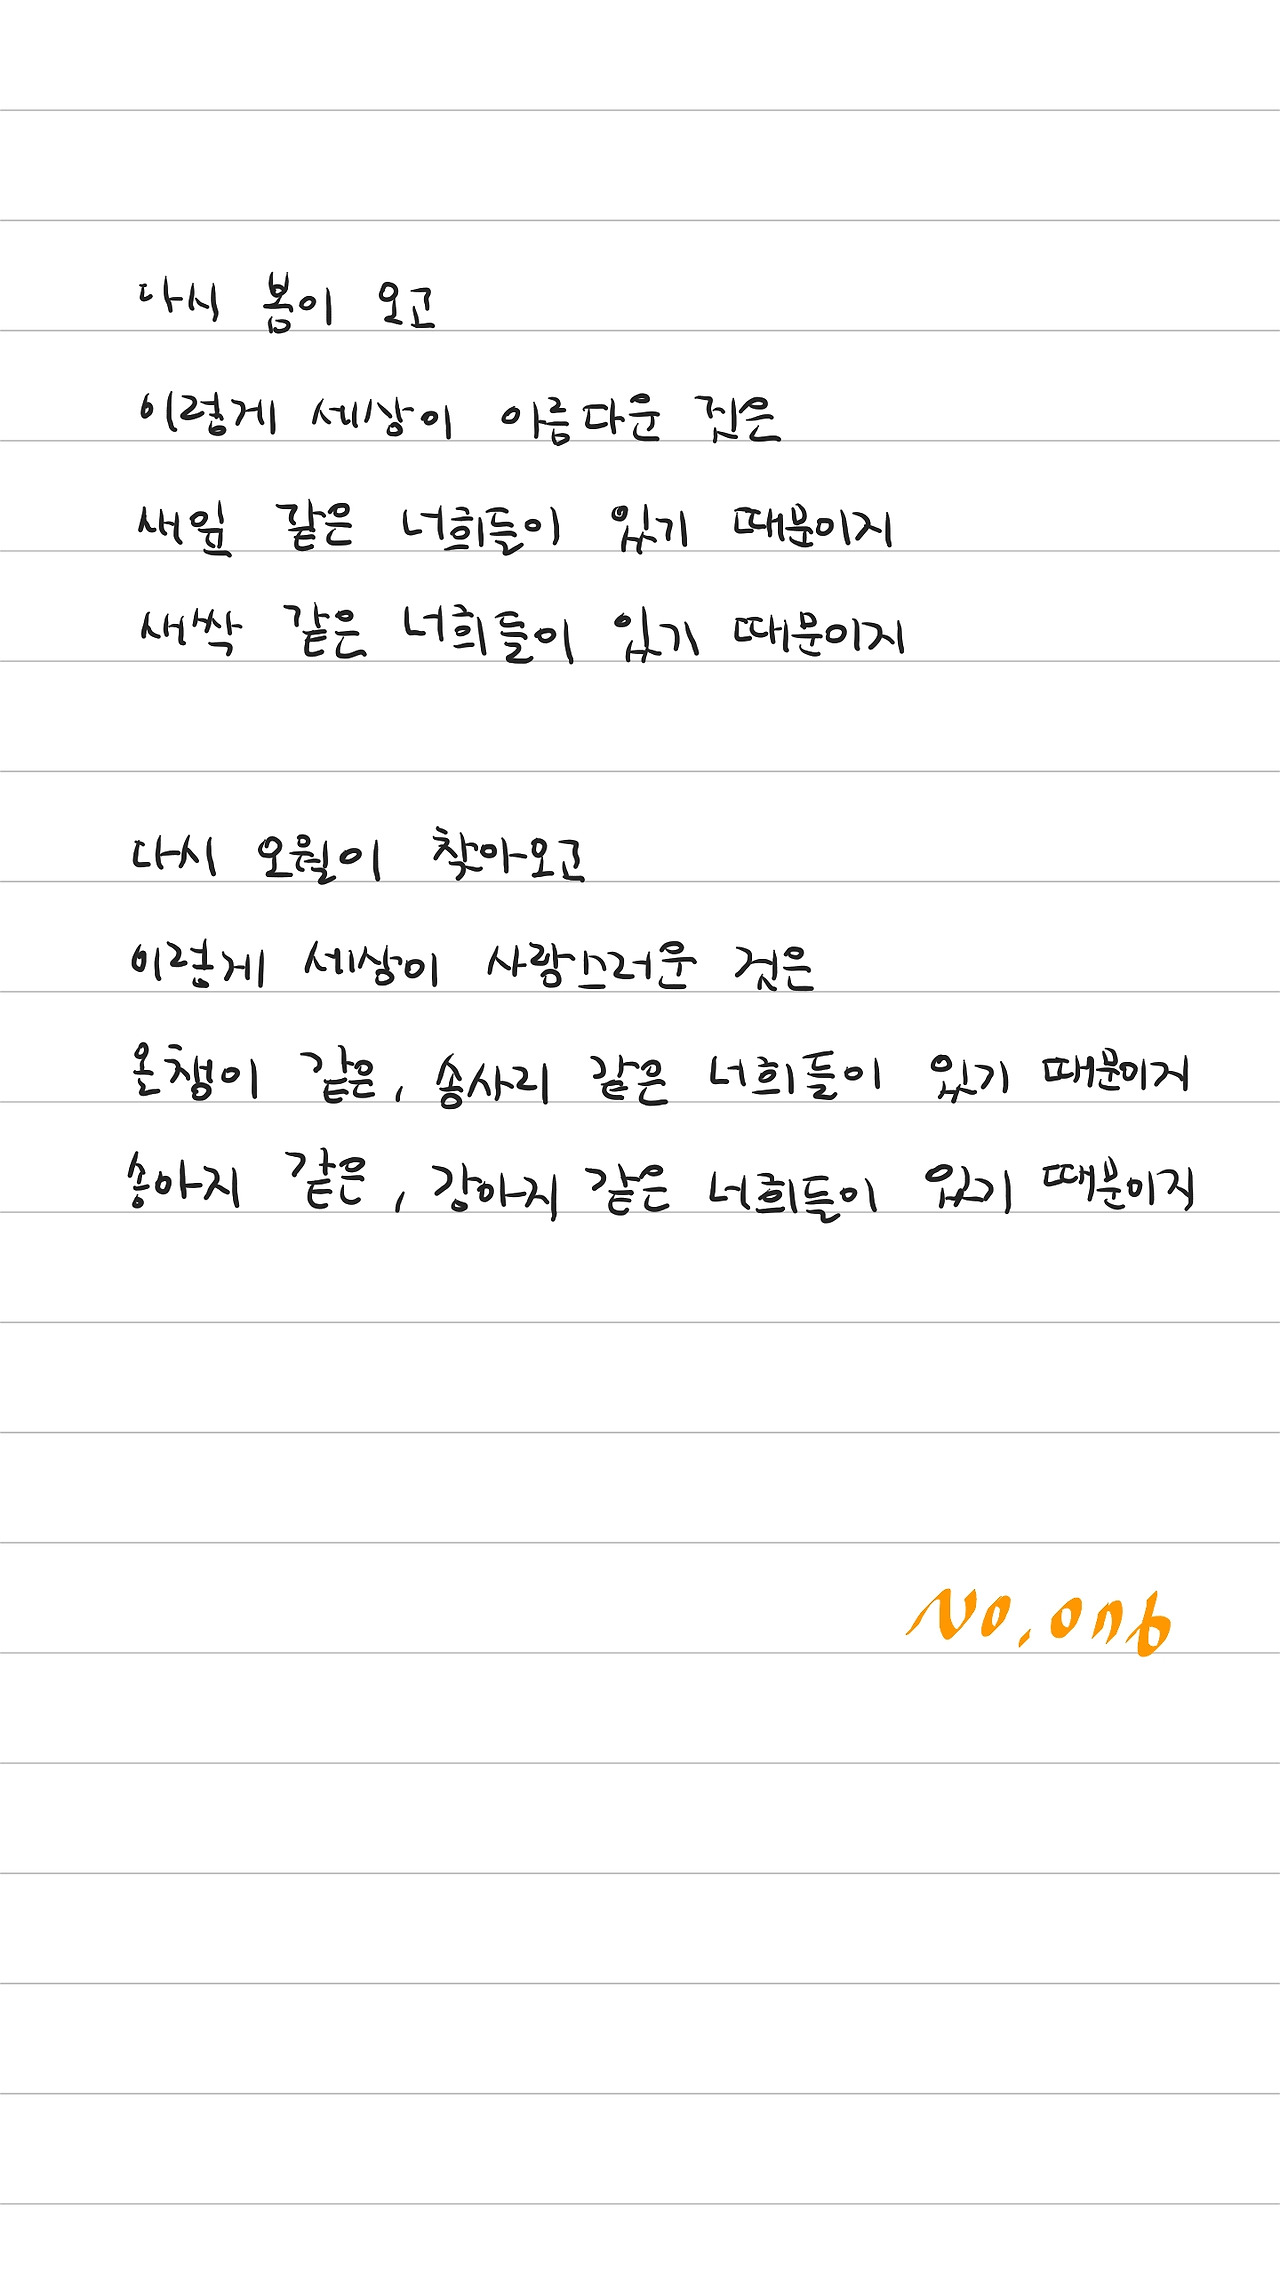 다시 봄이 오고
이렇게 세상이 아름다운 것은
새잎 같은 너희들이 있기 때문이지
새싹 같은 너희들이 있기 때문이지
다시 오월이 찾아오고
이렇게 세상이 사랑스러운 것은
온챙이 같은, 송사리 같은 너희들이 있기 때문이지
송아지 같은, 강아지 같은 너희들이 있기 때문이지